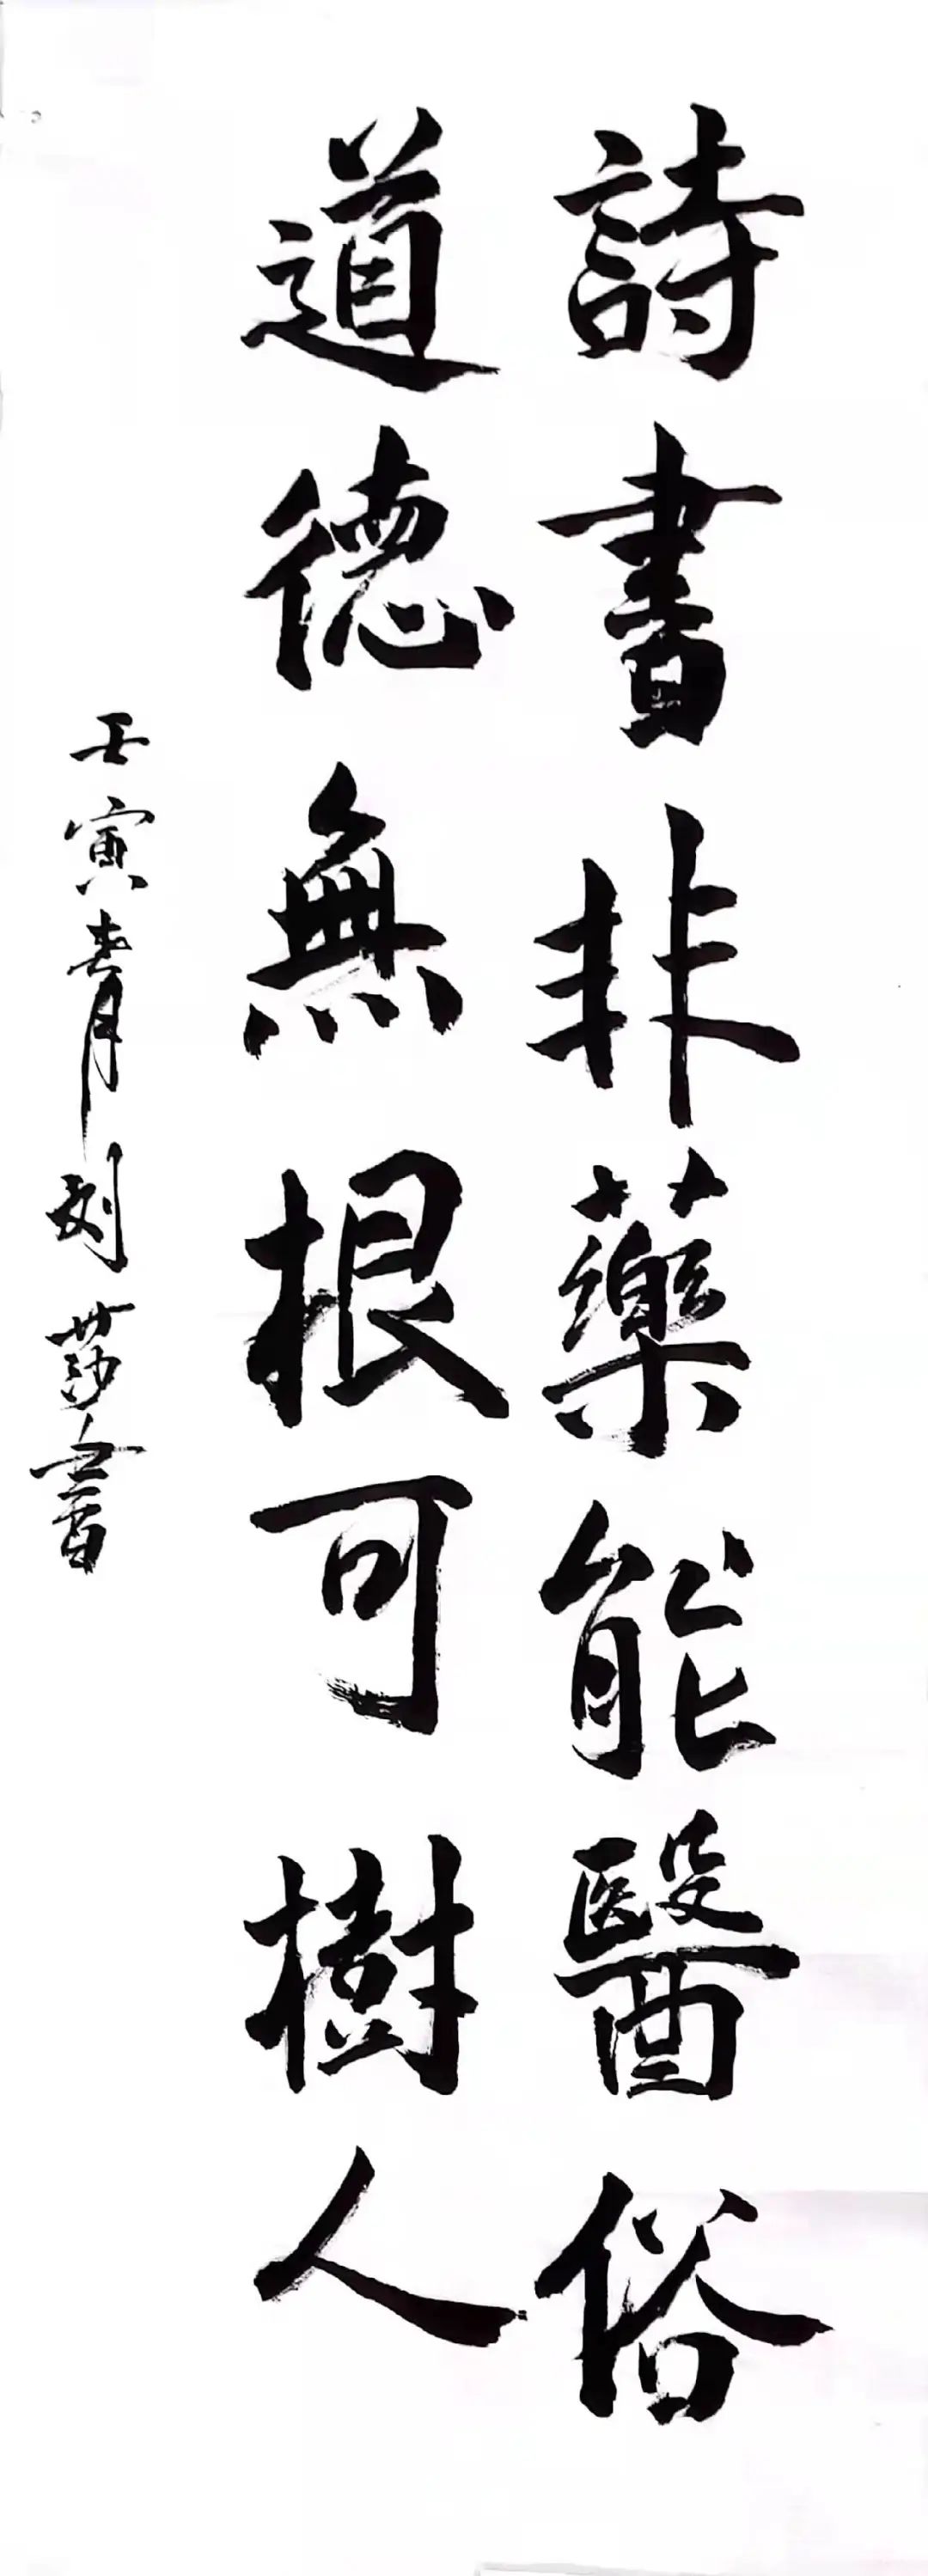 詩書非藥能醫俗
道德無根可樹人
壬寅春月劉莎書